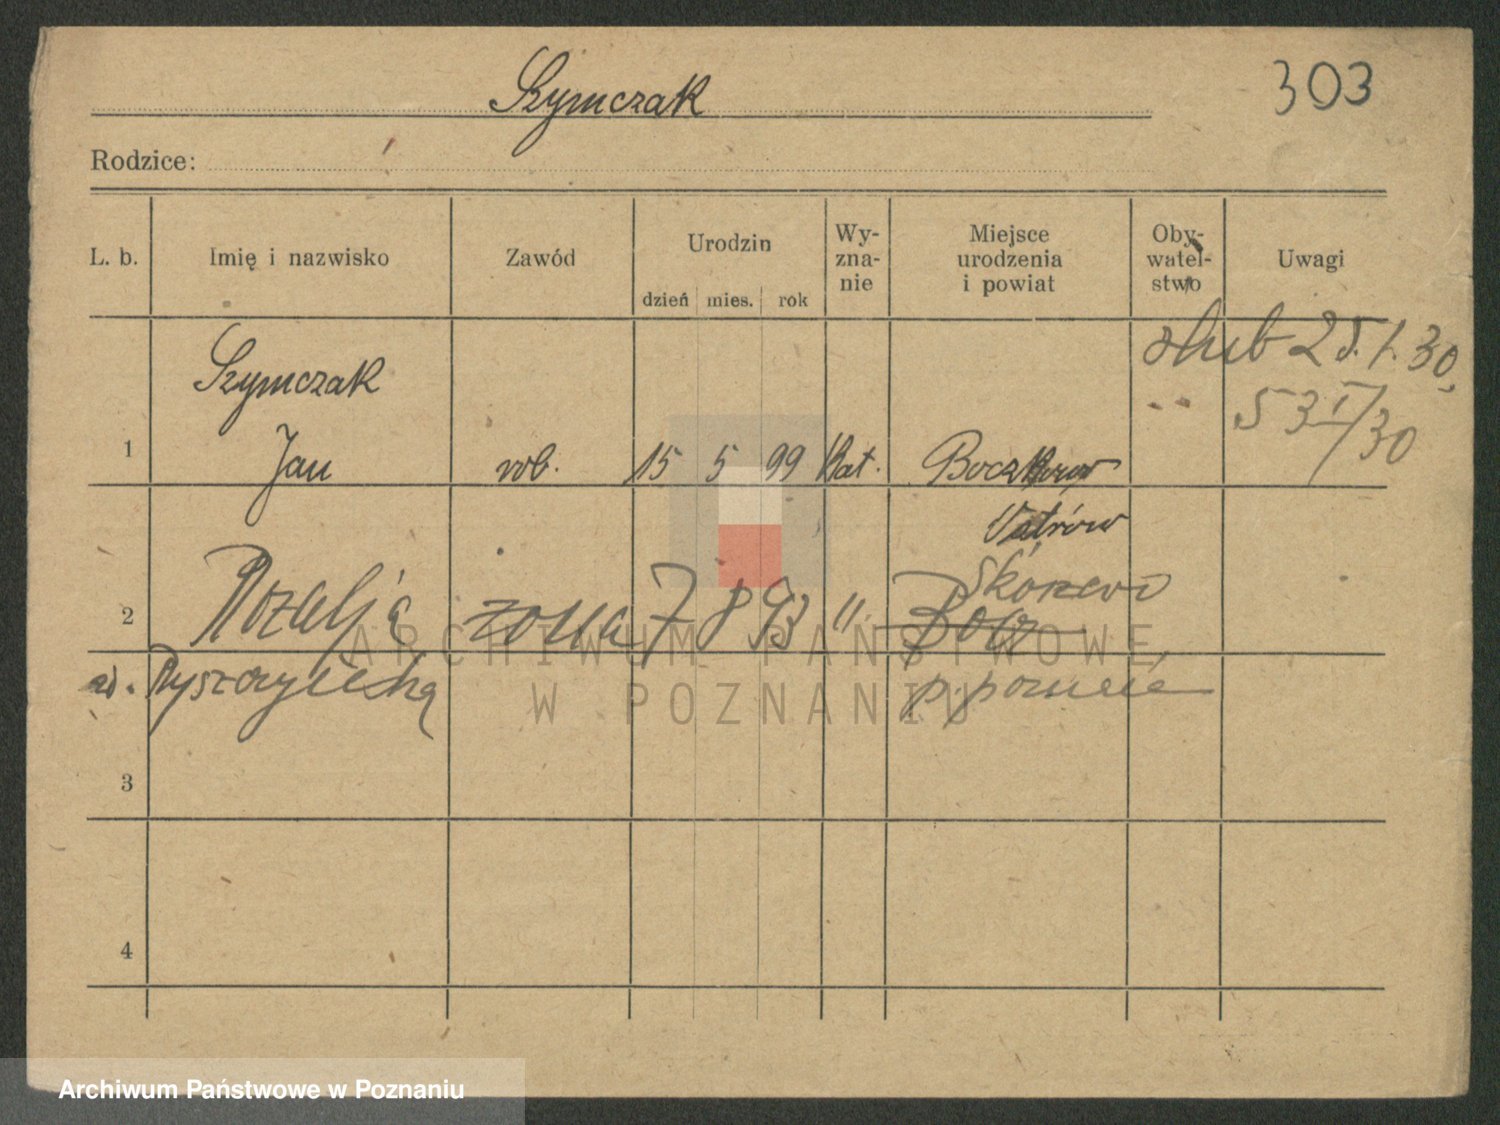 Szymczak
303
Rodzice:
L. b.
Imię i nazwisko
Zawód
Urodzin
dzień mies. rok
Wy-
zna-
nie
Miejsce
urodzenia
i powiat
Oby-
watel-
stwo
Uwagi
ślub 25.1.30,
53 I/30
Szymczak
1 Jan rob. 15 5 99 kat. Boczków
Ostrów
Skórzewo
2 Rozalja żona 7 8 93 "
p. poznań
3
4
ARCHIWUM PAŃSTWOWE
W POZNANIU
Archiwum Państwowe w Poznaniu